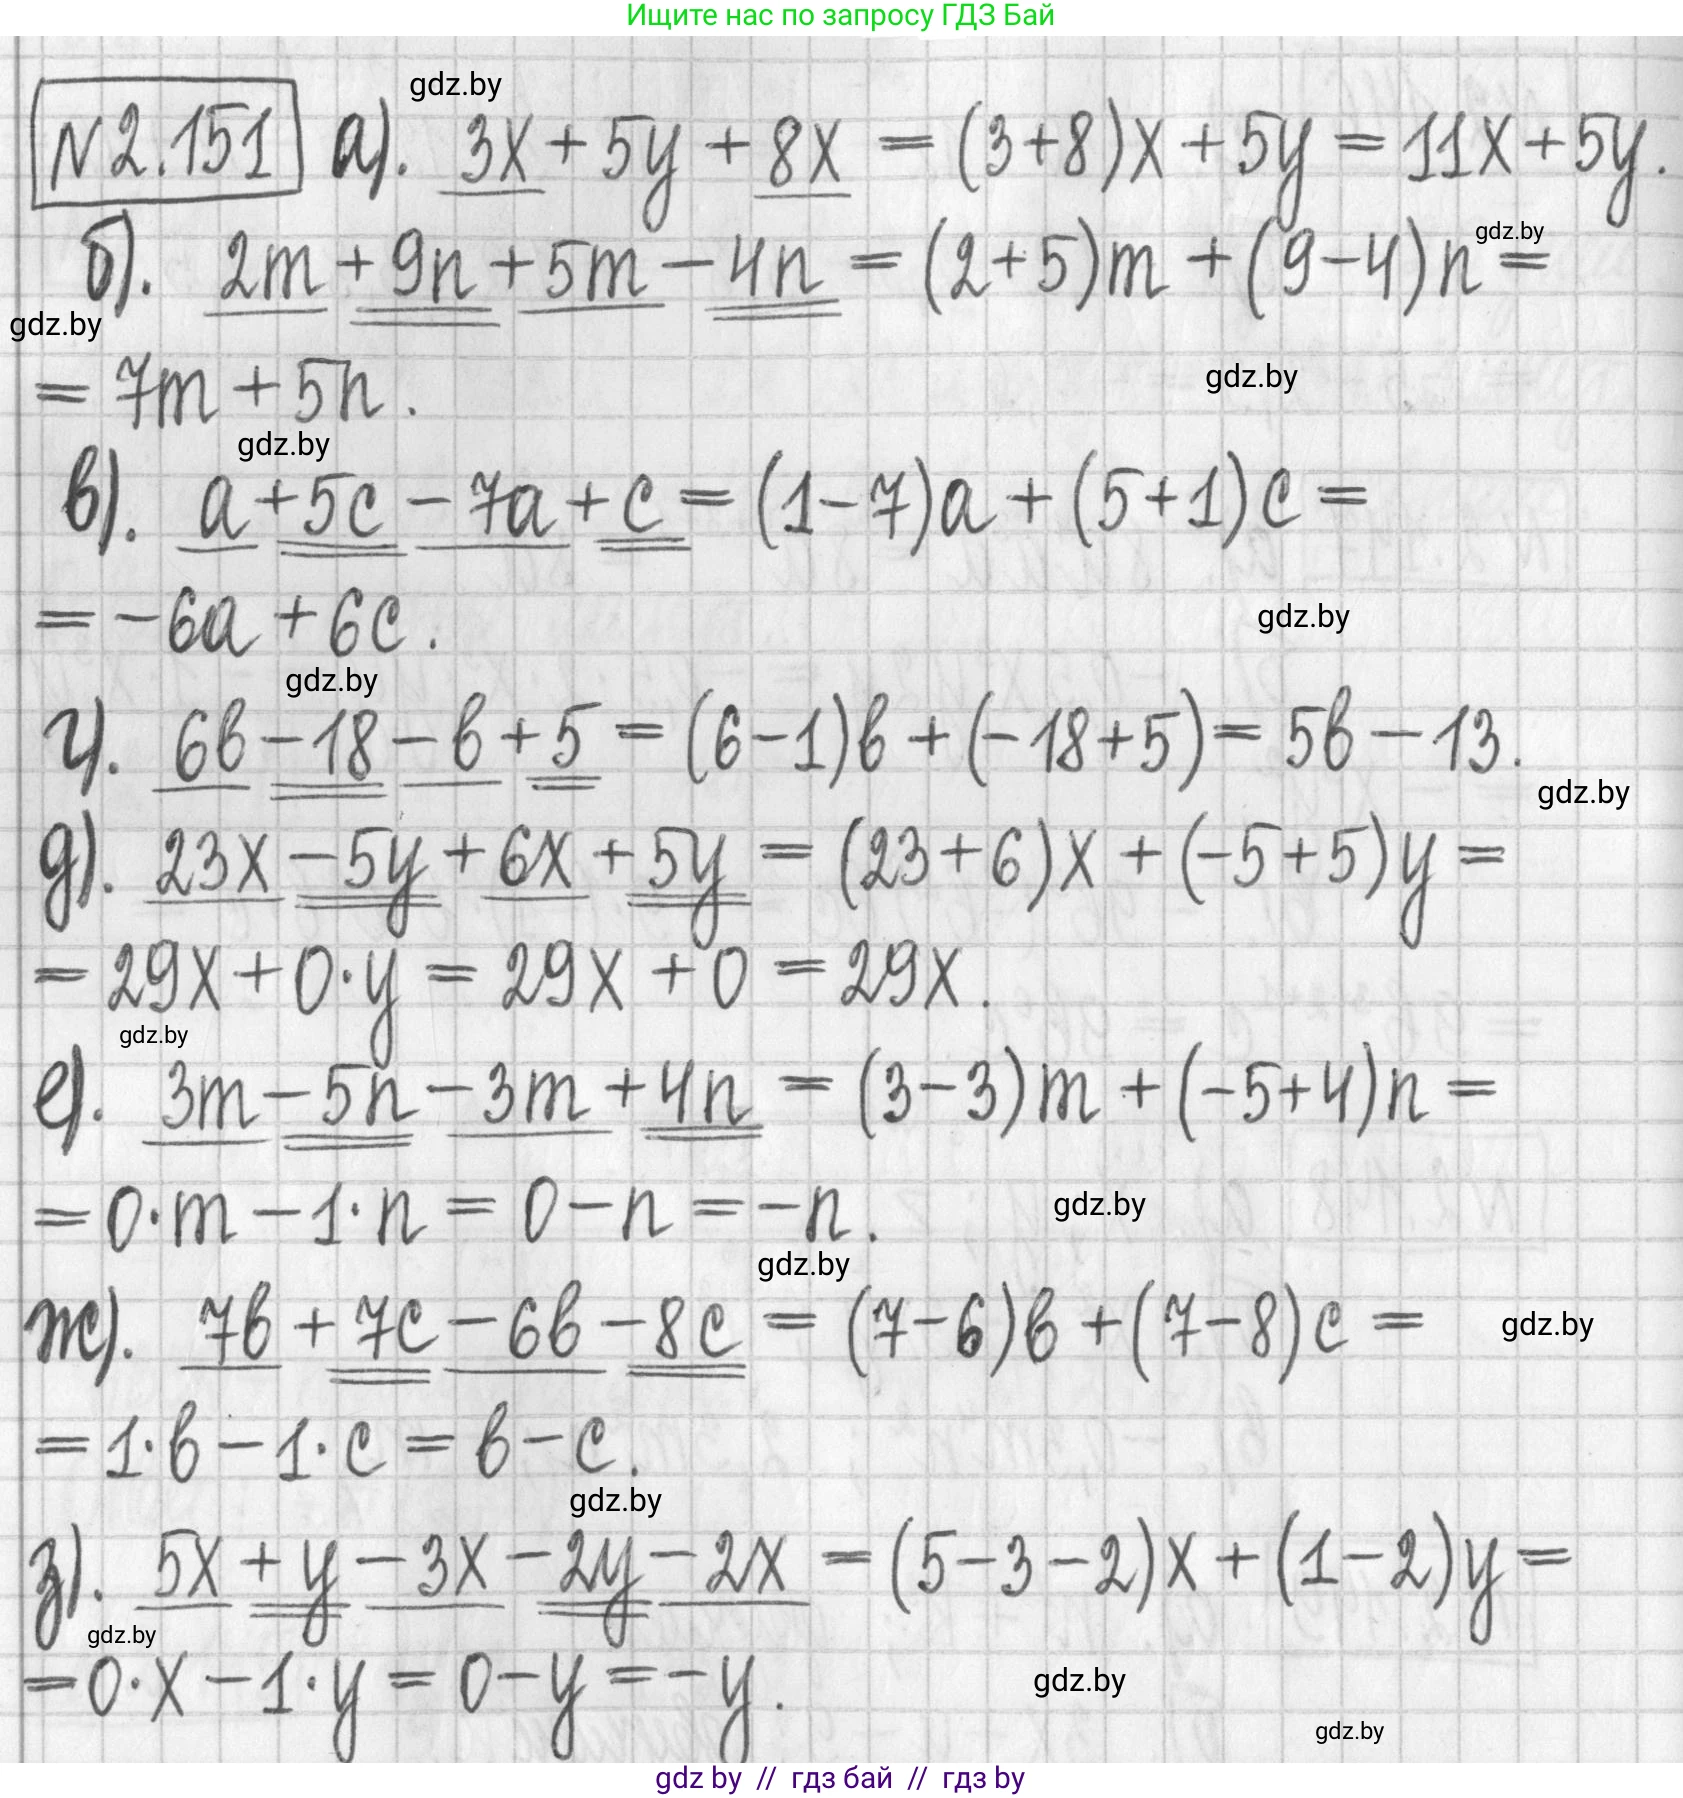 Ищите нас по запросу ГДЗ Бай
gdz.by
N2.151 а). 3x + 5y + 8x = (3+8)x + 5y = 11x + 5y.
б). 2m + 9n + 5m - 4n = (2+5)m + (9-4)n =
gdz.by
gdz.by
= 7m + 5n.
gdz.by
gdz.by
в). a + 5c - 7a + c = (1-7)a + (5+1)c =
= -6a + 6c.
gdz.by
gdz.by
г). 6b - 18 - b + 5 = (6-1)b + (-18+5) = 5b - 13.
gdz.by
д). 23x - 5y + 6x + 5y = (23+6)x + (-5+5)y =
= 29x + 0·y = 29x + 0 = 29x.
gdz.by
е). 3m - 5n - 3m + 4n = (3-3)m + (-5+4)n =
= 0·m - 1·n = 0 - n = -n.
gdz.by
gdz.by
ж). 7b + 7c - 6b - 8c = (7-6)b + (7-8)c =
gdz.by
= 1·b - 1·c = b - c.
gdz.by
з). 5x + y - 3x - 2y - 2x = (5-3-2)x + (1-2)y =
gdz.by
= 0·x - 1·y = 0 - y = -y.
gdz.by
gdz.by
gdz by // гдз бай // гдз by